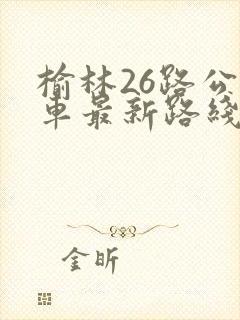 榆林26路公
車最新路綫
金昕